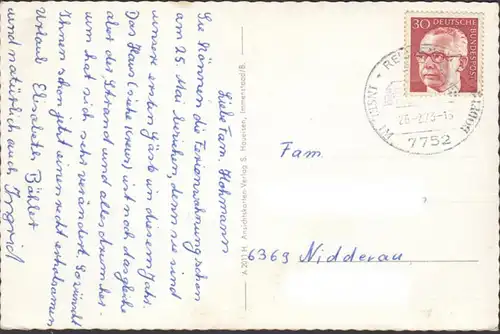 Liebe Fam. Hohmann
Sie können die Ferienwohnung schon
am 25. Mai beziehen, denn sie sind
unsere ersten Gäste in diesem Jahr.
Das Haus (siehe Kreuz) ist noch das gleiche
aber der Strand und alles drum her-
um hat sich sehr verändert. So wünscht
Ihnen schon jetzt einen recht erholsamen
Urlaub Elisabeth
und natürlich auch Ingrid
A 2011 H Ansichtskarten-Verlag B. Hauelsen, Immenstaad/B.
30 DEUTSCHE
BUNDESPOST
7752
Fam.
6369 Nidderau